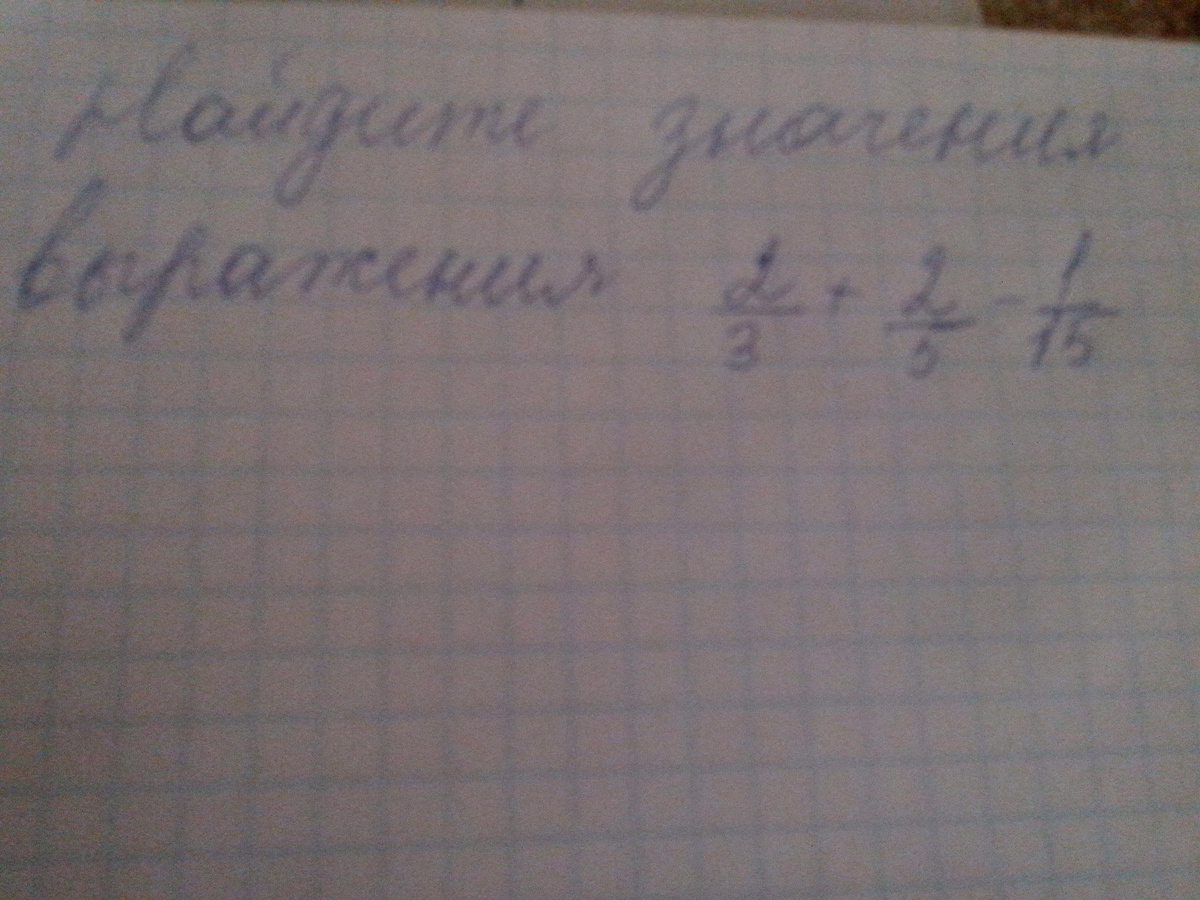 Найдите значения
выражения 2/3 + 2/5 - 1/15